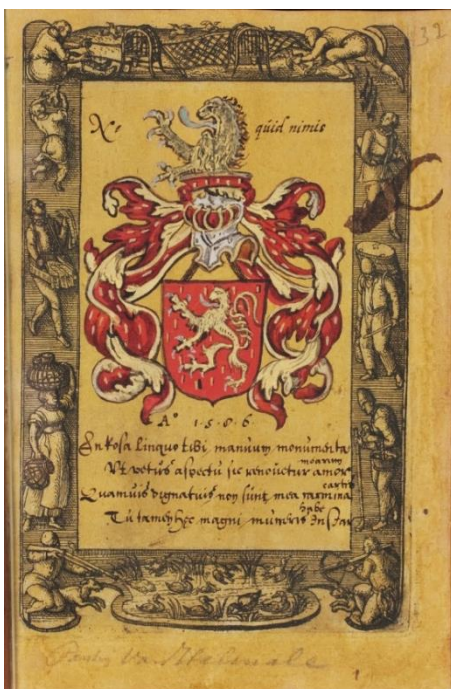 32
Ne quid nimis
Aº 1·5·8·6·
En Rosa linquo tibi, manuum monumenta mearum
Ut vetus aspectu sic renovetur amor
Quamvis dignatuis non sunt mea carmina cartis
Tu tamen hec magni muneris instar habe
Van
1